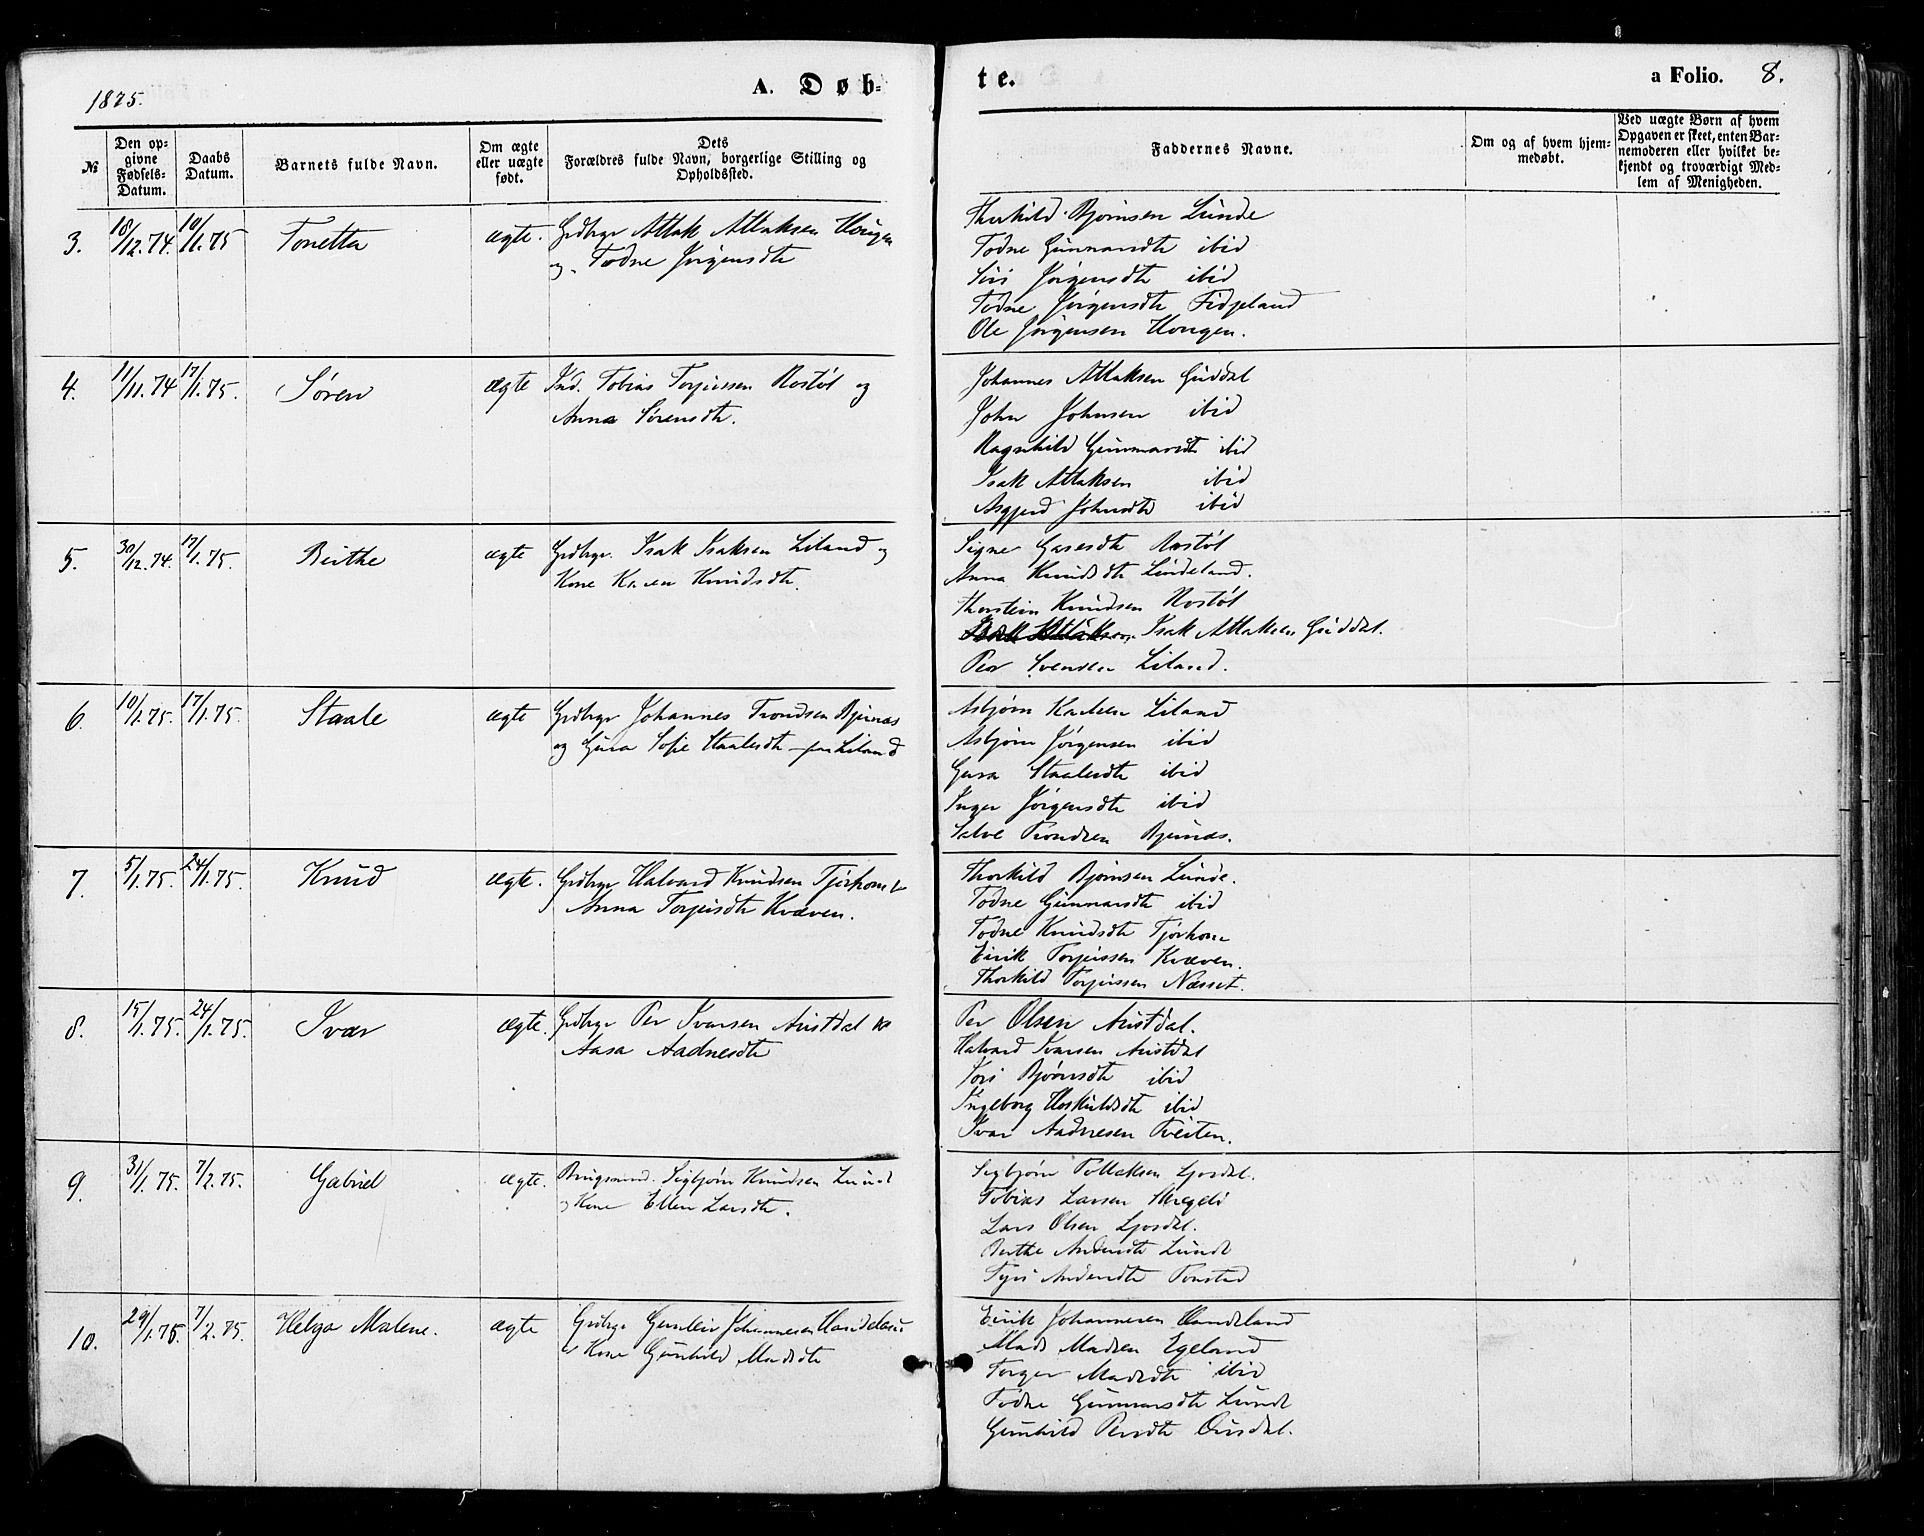 1875.
A. Døb-
te.
a Folio. 8.
№
Den op-
givne
Fødsels-
Datum.
Daabs
Datum.
Barnets fulde Navn.
Om ægte
eller uægte
født.
Dets
Forældres fulde Navn, borgerlige Stilling og
Opholdssted.
Faddernes Navne.
Om og af hvem hjem-
medøbt.
Ved uægte Børn af hvem
Opgaven er skeet, enten Bar-
nemoderen eller hvilket be-
kjendt og troværdigt Med-
lem af Menigheden.
3. 10/12.74. 10/1.75 Tonetta ægte. Grdbgr Atlak Atlaksen Hougen
og Todne Jørgensdtr
Thorkild Bjørnsen Lunde
Todne Gunnarsdtr ibid
Siri Jørgensdtr ibid
Todne Jørgensdtr Fidjeland
Ole Jørgensen Hougen.
4. 11/11.74 17/1.75. Søren ægte Ind. Tobias Torjussen Rostøl og
Anna Sørensdtr.
Johannes Atlaksen Guddal
John Johnsen ibid
Ragnhild Gunnarsdtr ibid
Isak Atlaksen ibid
Asgjerd Johnsdtr ibid
5. 30/12.74. 17/1.75. Birthe ægte Grdbgr. Isak Isaksen Liland og
Kone Karen Knudsdtr.
Signe Gasesdtr Rostøl
Anna Knudsdtr Lindeland.
Thorstein Knudsen Rostøl
Isak Atlaksen Guddal.
Per Svendsen Liland.
6. 10/1.75. 17/1.75. Staale ægte Grdbgr Johannes Trondsen Bjunas
og Gura Sofie Staalesdtr fra Liland
Asbjørn Karlsen Liland
Asbjørn Jørgensen ibid
Gura Staalesdtr ibid
Inger Jørgensdtr ibid
Salve Trondsen Bjunas.
7. 5/1.75. 24/1.75. Knud ægte. Grdbgr Halvard Knudsen Tjørhom &
Anna Torjusdtr Kvæven.
Thorkild Bjørnsen Lunde.
Todne Gunnarsdtr ibid
Todne Knudsdtr Tjørhom
Eirik Torjussen Kvæven.
Thorkild Torjussen Næsset.
8. 15/1.75. 24/1.75. Ivar ægte. Grdbgr Per Ivarsen Austdal &
Aasa Aadnesdtr
Per Olsen Austdal.
Halvard Ivarsen Austdal
Siri Bjørnsdtr ibid
Ingeborg Hoskuldsdtr ibid
Ivar Aadnesen Tveiten.
9. 31/1.75. 7/2.75. Gabriel ægte. Brugsmd. Sigbjørn Knudsen Lunde
og Kone Ellen Larsdtr.
Sigbjørn Tollaksen Ljosdal.
Tobias Larsen Skregeli
Lars Olsen Ljosdal.
Berthe Andersdtr Lunde
Siri Andersdtr Tonstad
10. 29/1.75. 7/2.75. Helga Malene. ægte Grdbgr Gunleiv Johannesen Handeland
& Kone Gunhild Madsdtr
Eirik Johannesen Handeland
Mads Madsen Egeland
Torger Madsdtr ibid
Todne Gunnarsdtr Lunde
Gunhild Persdtr Ousdal.